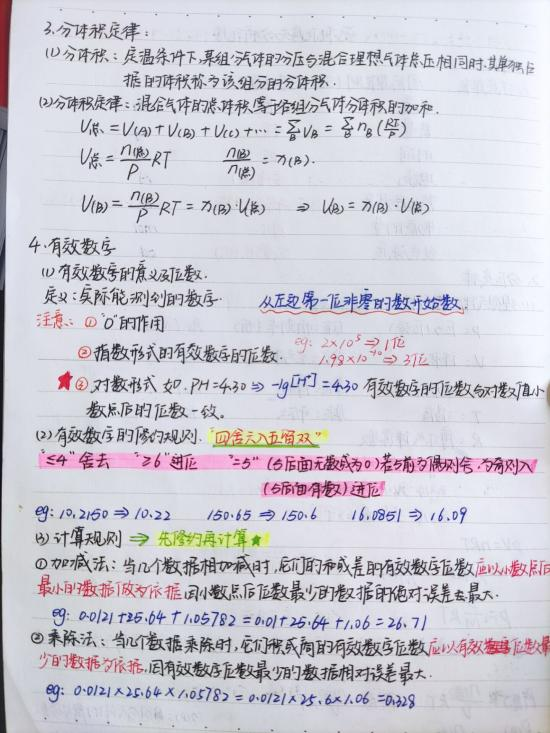 3.分体积定律:
(1)分体积:定温条件下,某组分气体的分压与混合理想气体总压相同时,其单独占
据的体积称为该组分的分体积.
(2)分体积定律:混合气体的总体积等于各组分气体分体积的加和.
V总=V(A)+V(B)+V(C)+…=∑B VB=∑B nB(RT/P)
V总=n(总)/P RT n(B)/n(总)=x(B).
V(B)=n(B)/P RT=x(B)·V(总) ⇒ V(B)=x(B)·V(总)
4.有效数字
(1)有效数字的意义及位数.
定义:实际能测到的数字. 从左边第一位非零的数开始数.
注意:①"0"的作用
②指数形式的有效数字的位数. eg: 2×10⁵⇒1位
1.98×10⁻¹⁰⇒3位
★③对数形式 如.PH=4.30⇒-lg[H⁺]=4.30 有效数字的位数与对数值小
数点后的位数一致。
(2)有效数字的修约规则."四舍六入五留双"
"≤4"舍去 "≥6"进位 "=5"(5后面无数或为0)若5前为偶则舍,为奇则入
(5后面有数)进位
eg: 10.2150⇒10.22 150.65⇒150.6 16.0851⇒16.09
(3)计算规则 ⇒ 先修约再计算★
①加减法:当几个数据相加减时,它们的和或差的有效数字位数,应以小数点后
最小的数据做为依据,因小数点后位数最少的数据的绝对误差最大.
eg: 0.0121+25.64+1.05782=0.01+25.64+1.06=26.71
②乘除法:当几个数据乘除时,它们积或商的有效数字位数应以有效数字位数最
少的数据为依据,因有效数字位数最少的数据相对误差最大.
eg: 0.0121×25.64×1.05782=0.0121×25.6×1.06=0.328